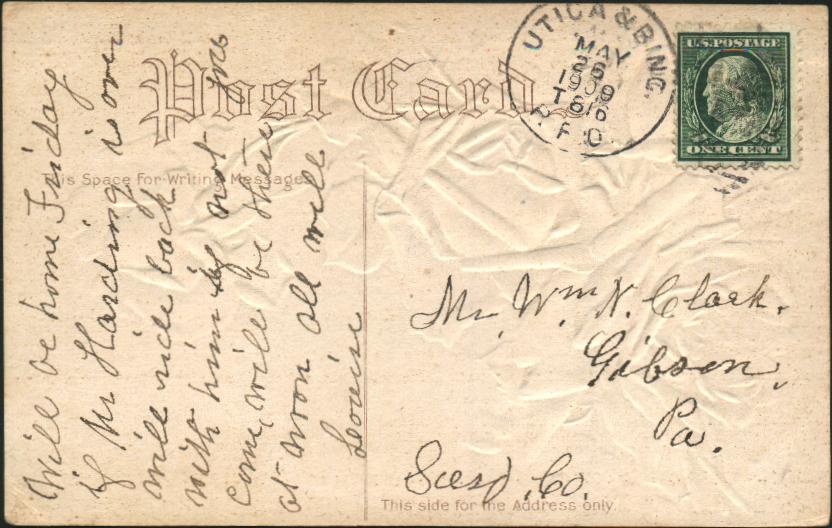 Post Card
This Space for Writing Messages
Will be home Friday
if Mr Harding is over
will ride back
with him if not
come, will be there
at noon all well
Louise
UTICA & BING.
MAY
26
1909
R.P.O.
U.S. POSTAGE
ONE CENT
Mr. Wm N. Clark.
Gibson,
Pa.
Susq. Co.
This side for the Address only.